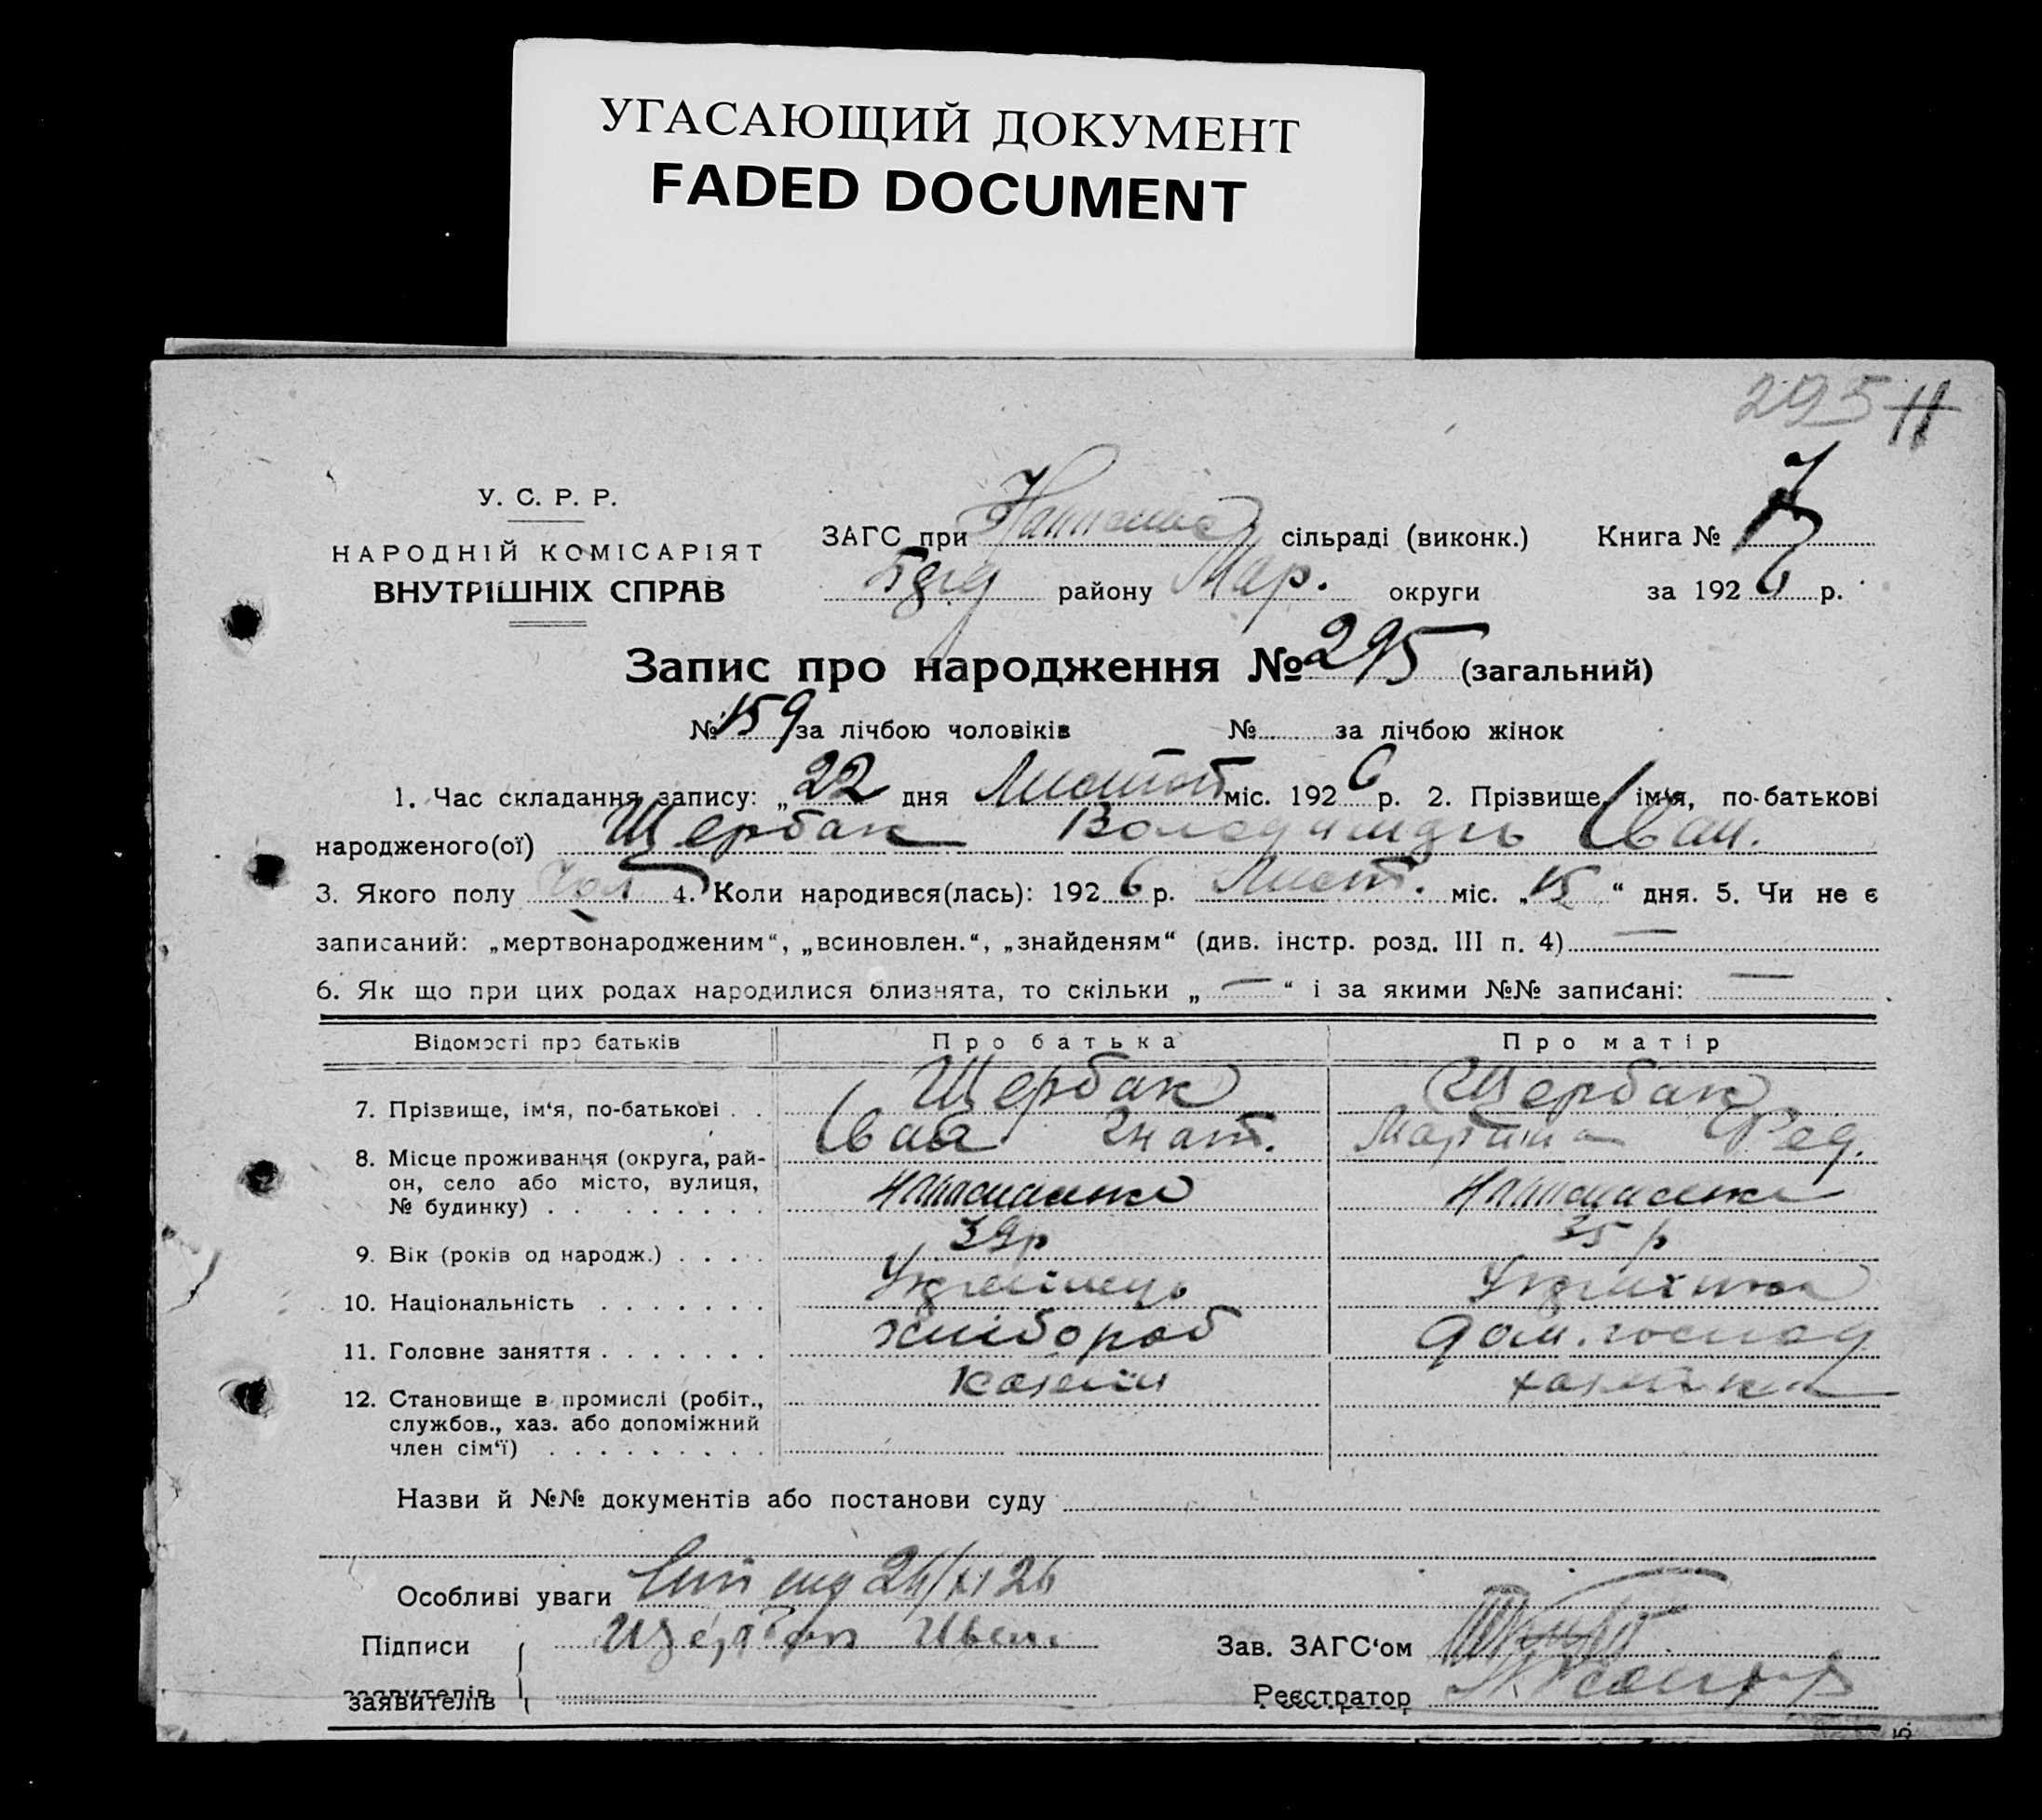 УГАСАЮЩИЙ ДОКУМЕНТ
FADED DOCUMENT
295
11
У. С. Р. Р.
НАРОДНІЙ КОМІСАРІЯТ
ВНУТРІШНІХ СПРАВ
ЗАГС при сільраді (виконк.)
району Мар. округи
Книга №
за 1926 р.
Запис про народження № 295 (загальний)
№ 159 за лічбою чоловіків № за лічбою жінок
1. Час складання запису: „ 22 дня Листоп міс. 1926 р. 2. Прізвище, ім‘я, по-батькові
народженого(ої) Щербак Володимирь Іван.
3. Якого полу Чол 4. Коли народився(лась): 1926 р. Лист. міс. „ 15 “ дня. 5. Чи не є
записаний: „мертвонародженим“, „всиновлен.“, „знайденям“ (див. інстр. розд. III п. 4) —
6. Як що при цих родах народилися близнята, то скільки „ — “ і за якими №№ записані: —
Відомості про батьків Про батька Про матір
7. Прізвище, ім‘я, по-батькові . . Щербак Щербак
Іван Гнат. Фед.
8. Місце проживання (округа, рай-
он, село або місто, вулиця,
№ будинку) . . . . . . . . .
9. Вік (років од народж.) . . . . 39р 35 р
10. Національність . . . . . . . Українець Українка
11. Головне заняття . . . . . . . хлібороб дом. господ
12. Становище в промислі (робіт., хазяїн хазяйка
службов., хаз. або допоміжний
член сім‘ї) . . . . . . . . .
Назви й №№ документів або постанови суду
Особливі уваги 24/XI 26
Підписи Щербак Иван
заявителів
Зав. ЗАГС‘ом
Реєстратор